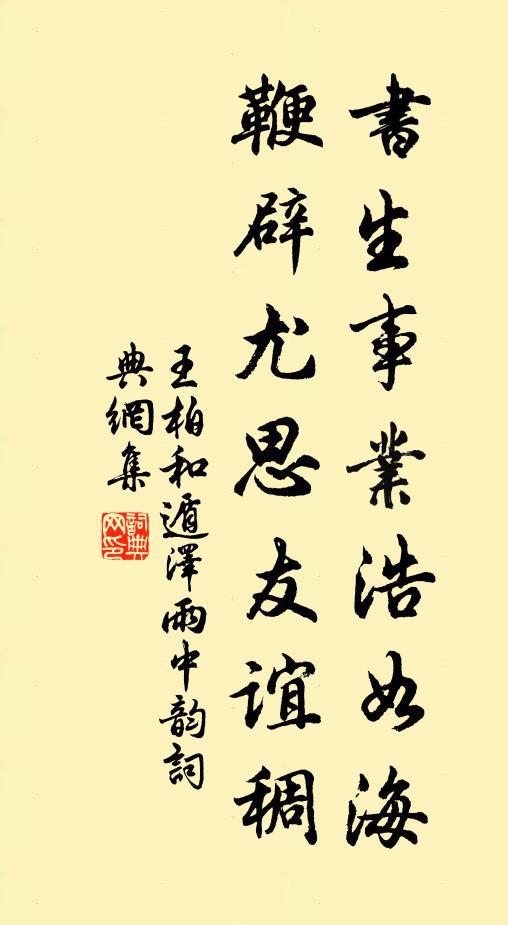 書生事業浩如海
鞭辟尤思友誼稠
王柏和遁澤雨中韵詞
典網集
詞典
网印